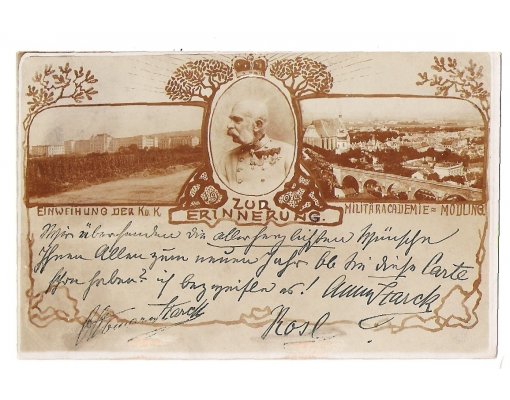 ZUR
ERINNERUNG.
EINWEIHUNG DER K.u.K.
MILITÄRACADEMIE = MÖDLING
Wir übersenden die allerherzlichsten Wünsche
Ihnen Allen zum neuen Jahr. Ob Sie diese Carte
schon haben? ich bezweifle es! Anny Starck
Starck
Rosl